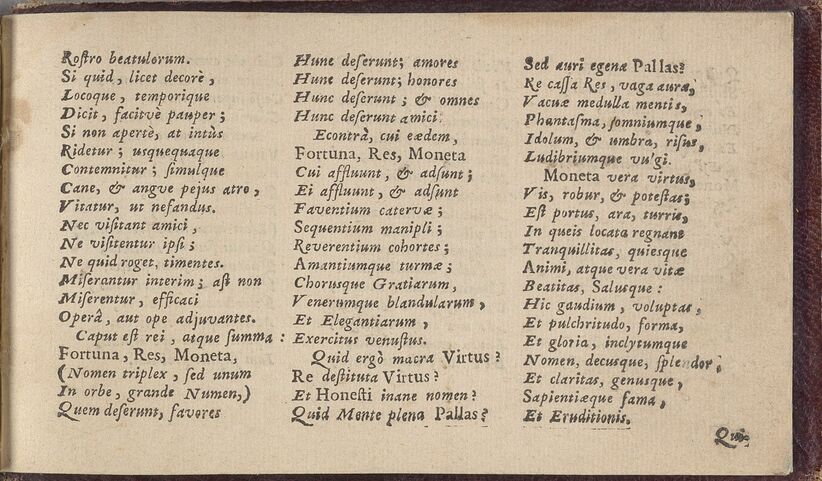 Rostro beatulorum.
Si quid, licet decorè,
Locoque, temporique
Dicit, facitvè pauper;
Si non apertè, at intùs
Ridetur; usquequaque
Contemnitur; simulque
Cane, & angve pejus atro,
Vitatur, ut nefandus.
Nec visitant amici,
Ne visitentur ipsi;
Ne quid roget, timentes.
Miserantur interim; ast non
Miserentur, efficaci
Operâ, aut ope adjuvantes.
Caput est rei, atque summa:
Fortuna, Res, Moneta,
(Nomen triplex, sed unum
In orbe, grande Numen,)
Quem deserunt, favores
Hunc deserunt; amores
Hunc deserunt; honores
Hunc deserunt; & omnes
Hunc deserunt amici.
Econtrà, cui eædem,
Fortuna, Res, Moneta
Cui affluunt, & adsunt;
Ei affluunt, & adsunt
Faventium catervæ;
Sequentium manipli;
Reverentium cohortes;
Amantiumque turmæ;
Chorusque Gratiarum,
Venerumque blandularum,
Et Elegantiarum,
Exercitus venustus.
Quid ergò macra Virtus?
Re destituta Virtus?
Et Honesti inane nomen?
Quid Mente plena Pallas?
Sed auri egena Pallas?
Re cassa Res, vaga aura,
Vacuæ medulla mentis,
Phantasma, somniumque,
Idolum, & umbra, risus,
Ludibriumque vulgi.
Moneta vera virtus,
Vis, robur, & potestas;
Est portus, ara, turris,
In queis locata regnant
Tranquillitas, quiesque
Animi, atque vera vitæ
Beatitas, Salusque:
Hic gaudium, voluptas,
Et pulchritudo, forma,
Et gloria, inclytumque
Nomen, decusque, splendor;
Et claritas, genusque,
Sapientiæque fama,
Et Eruditionis.